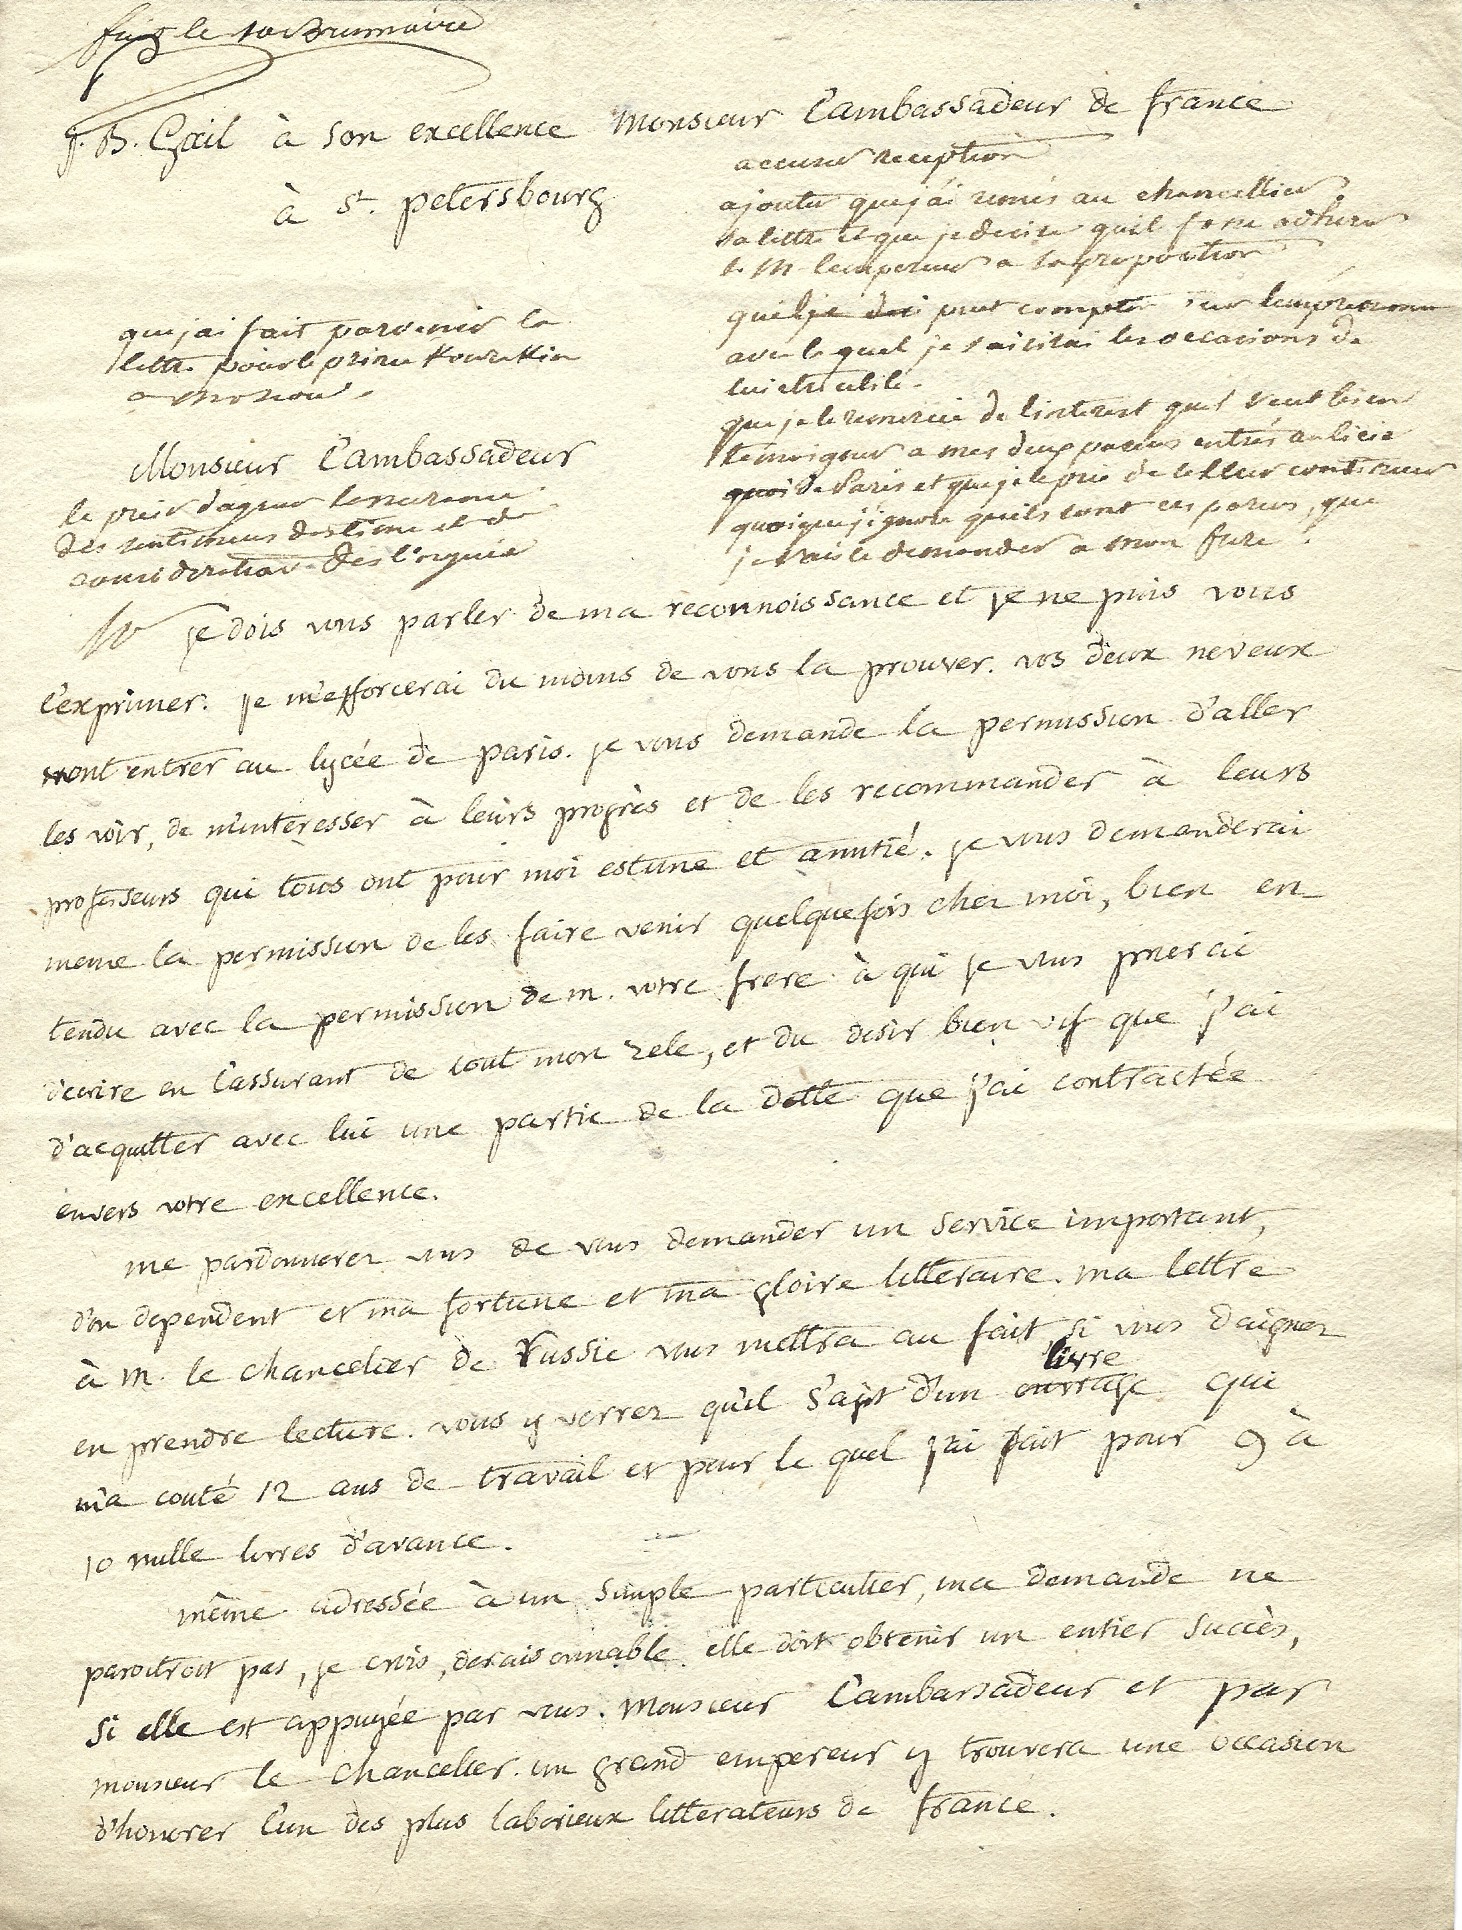 fait le 10 Brumaire
J. B. Gail à son excellence Monsieur l'ambassadeur de france
à St. petersbourg
accuser reception
ajouter que j'ai remis au chancellier
sa lettre et que je desire quil fasse adherer
s. M. l'empereur a sa proposition
quil je peut compter sur l'empressement
avec le quel je saisirai les occasions de
lui etre utile.
que je le remercie de l'interest quil veut bien
temoigner a mes deux neveux entrés au licée
de Paris et que je le prie de le leur continuer
quoique j'ignore quils sont ces parens, que
je vais le demander a mon frere.
que jai fait parvenir la
lettre pour le prince Kourakin
a Moscou.
Monsieur l'ambassadeur
le prier d'agreer l'assurance
des sentimens destime et de
consideration dés lorquié
je dois vous parler de ma reconnoissance et je ne puis vous
l'exprimer. je m'efforcerai du moins de vous la prouver. vos deux neveux
vont entrer au lycée de paris. je vous demande la permission d'aller
les voir, de m'interesser à leurs progrès et de les recommander à leurs
professeurs qui tous ont pour moi estime et amitié. je vous demanderai
meme la permission de les faire venir quelquefois chez moi, bien en
tendu avec la permission de m. votre frere à qui je vous prierai
d'ecrire en l'assurant de tout mon zele, et du desir bien vif que j'ai
d'acquitter avec lui une partie de la dette que j'ai contractée
envers votre excellence.
me pardonnerez vous de vous demander un service important,
d'ou dependent et ma fortune et ma gloire litteraire. ma lettre
à m. le chancelier de russie vous mettra au fait, si vous daignez
en prendre lecture. vous y verrez qu'il s'agit d'un ouvrage livre qui
m'a couté 12 ans de travail et pour le quel j'ai fait pour 9 à
10 mille livres d'avance.
même adressée à un simple particulier, ma demande ne
paroitroit pas, je crois, deraisonnable. elle doit obtenir un entier succès,
si elle est appuyée par vous. Monsieur l'ambassadeur et par
monsieur le chancelier. un grand empereur y trouvera une occasion
d'honorer l'un des plus laborieux litterateurs de france.